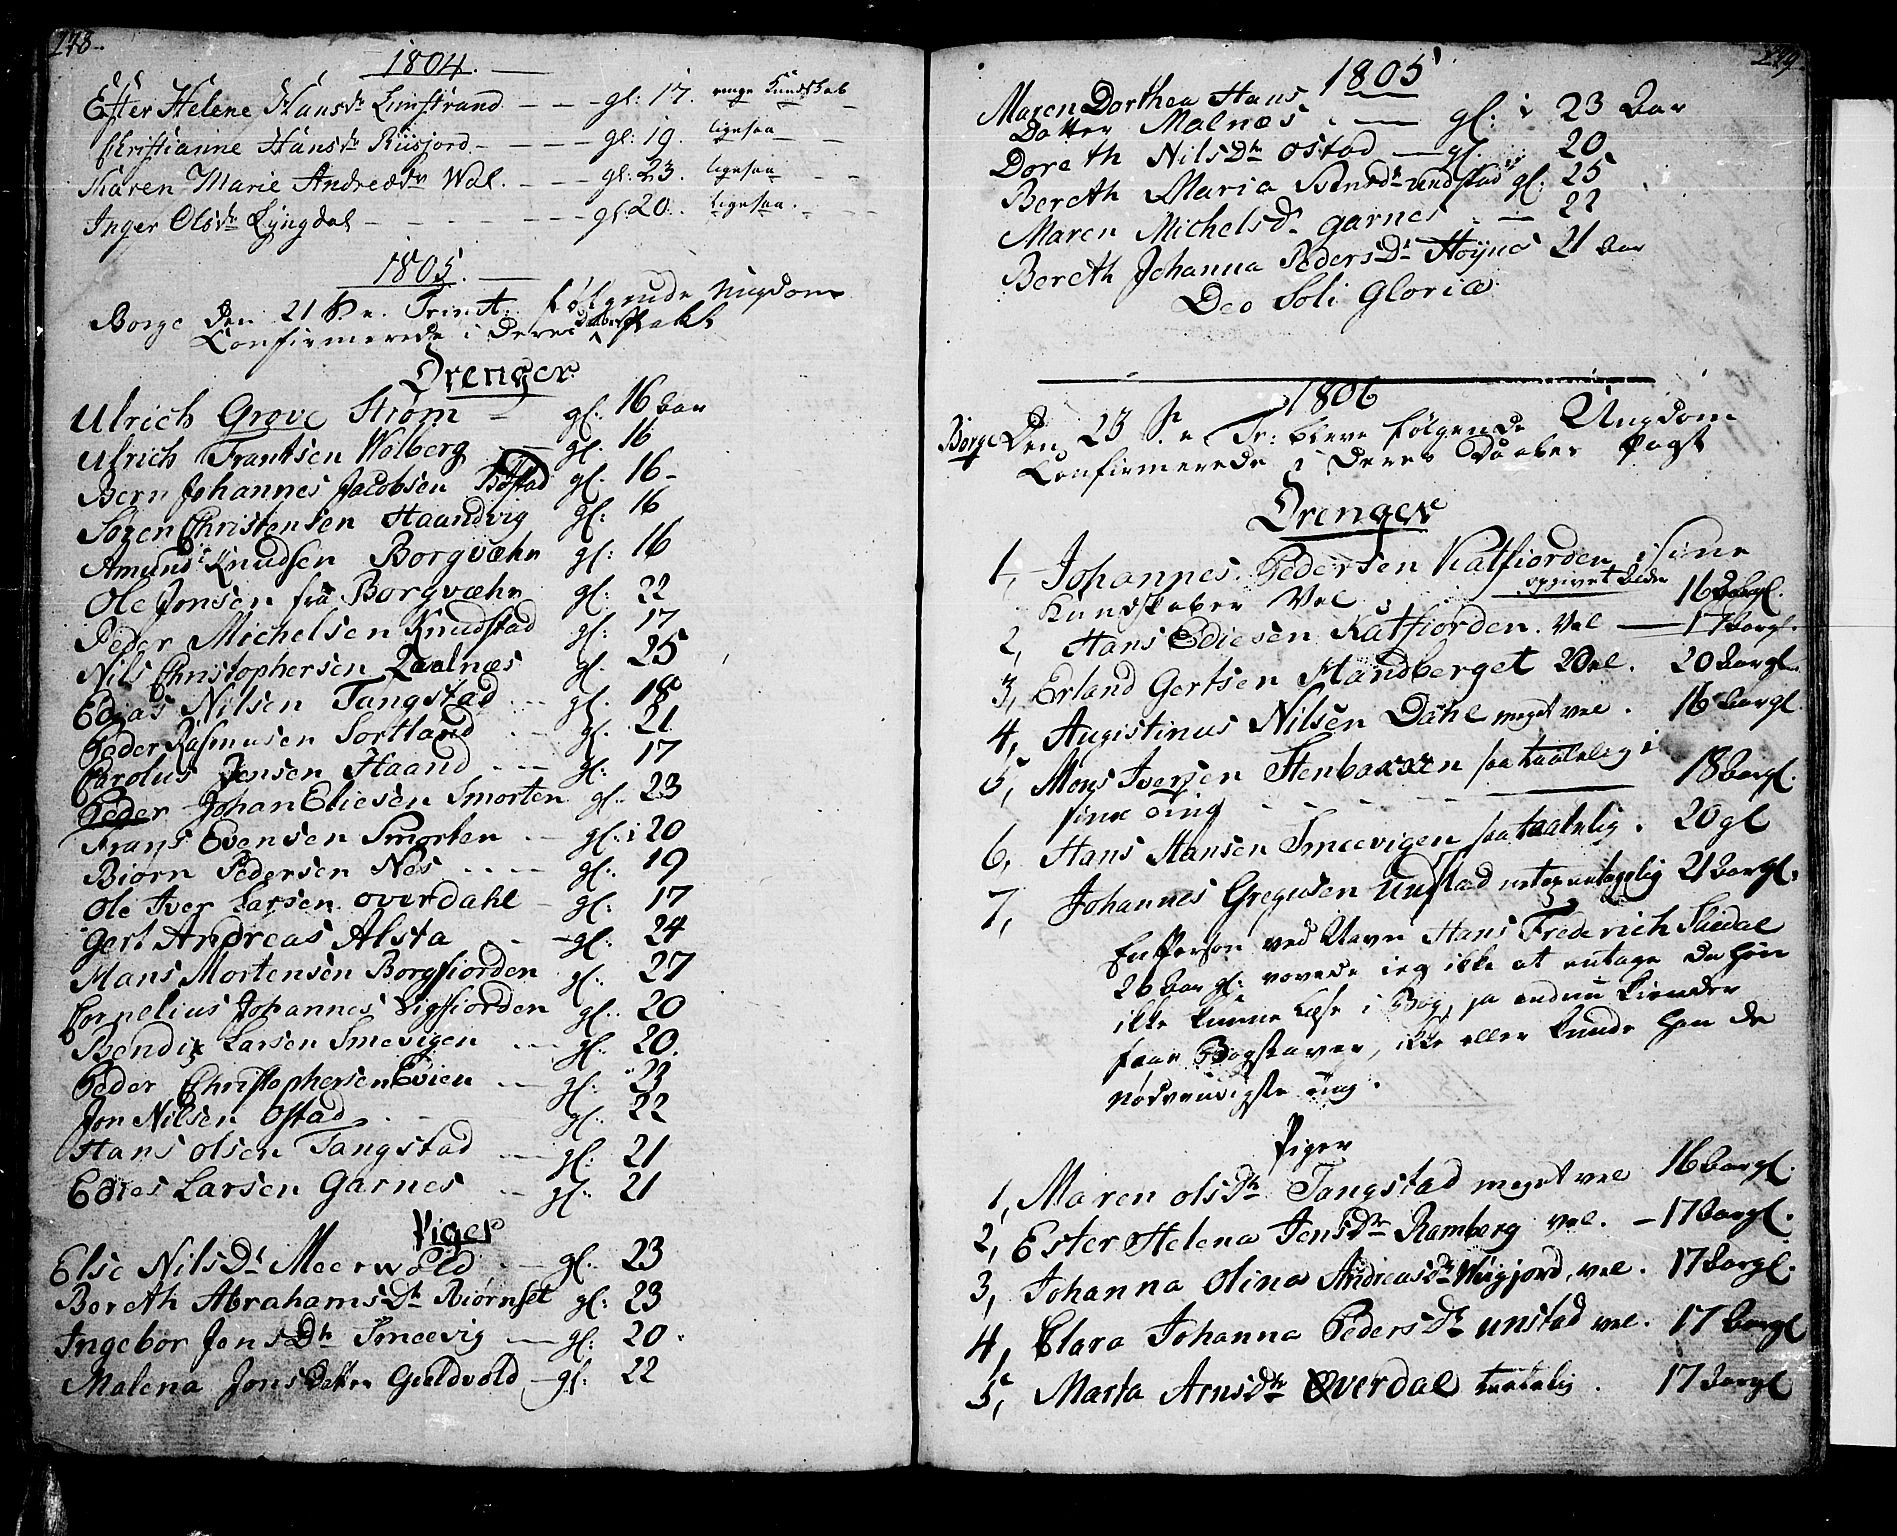 278.
1804.
Ester Helene Hansdr Limstrand gl: 17. ringe Kundskab
Christianne Hansdr Riisjord gl: 19. ligesaa
Karen Marie Andreædr Wal. gl: 23. ligesaa
Inger Olsdr Lyngdal gl: 20. Ligesaa.
1805.
Borge den 21 S. e. Trinit: følgende Ungdom
Confirmerede i deres Daabes Pakt
Drenger
Ulrich Grove Strøm gl: 16 Aar
Ulrich Frantsen Wolberg gl: 16
Bern Johannes Jacobsen Bøstad gl: 16
Søren Christensen Haandvig gl: 16
Amund Knudsen Borgvæhr gl: 16
Ole Jonsen fra Borgvæhr gl: 22
Peder Michelsen Knudstad gl: 17
Nils Christophersen gl. 25
Edias Nilsen Tangstad gl. 18
Peder Rasmusen Sortland gl. 21
Carolus Jensen Haand gl: 17
Peder Johan Eliesen Smorten gl: 23
Frans Evensen Smorten gl: 20
Biørn Pedersen Næs gl: 19
Ole Iver Larsen Overdahl gl: 17
Gert Andreas Alsta gl: 24
Hans Mortensen Borgfiorden gl: 27
Cornelius Johannes Sigfiorden gl: 20
Bendix Larsen Smevigen gl: 20.
Peder Christophersen Evien gl: 23
Jon Nilsen Ostad gl: 22
Hans Olsen Tangstad gl: 21
Edies Larsen Garnes gl: 21
Piger
Else Nils Dr Meerwold gl: 23
Bereth Abrahams Dr Biørnset gl: 23
Ingebor Jens Dr Smeevig gl: 20.
Malena Jons Datter Guldvold gl: 22
279.
1805
Maren Dorthea Hans
Datter Malnæs gl: 23 Aar
Doreth Nils Dr Ostad gl. 20
Bereth Maria Svensdr Unstad gl: 25
Maren Michels Dr Garnes 22
Bereth Johanna Peders Dr Høynes 21 Aar
Deo Soli Gloria
1806
Borge Den 23 S. e Tr: bleve følgende Ungdom
Confirmerede i deres Daabes Pagt
Drenger
1, Johannes Pedersen Katfiorden, i sine
Kundskaber Vel 16 Aar gl.
2, Hans Ediesen Katfiorden. Vel 17 Aar gl.
3, Erland Gertsen Handberget Vel. 20 Aar gl.
4, Augistinus Nilsen Dahl meget vel. 16 Aar gl.
5, Mons Iversen Stenbaxen saa taalelig i
sine ting 18 Aar gl.
6, Hans Hansen Smeevigen saa taalelig. 20 gl
7, Johannes Gregusen Unstad 21 Aar gl.
En Person ved Navn Hans Frederich
26 Aar gl: vovede ieg ikke at antage da han
ikke kunne Læse i Bog, ja endnu kiender
faae Bogstaver, ikke eller kunde han de
nødvendigste ting.
Piger
1, Maren Ols Dr Tangstad meget vel 16 Aar gl.
2, Ester Helena Jens Dr Ramberg vel. 17 Aar gl.
3, Johanna Olina Andreas Dr vel. 17 Aar gl.
4, Clara Johanna Peders Dr Unstad vel. 17 Aar gl
5, Marta Arns Dr Overdal taalelig. 17 Aar gl